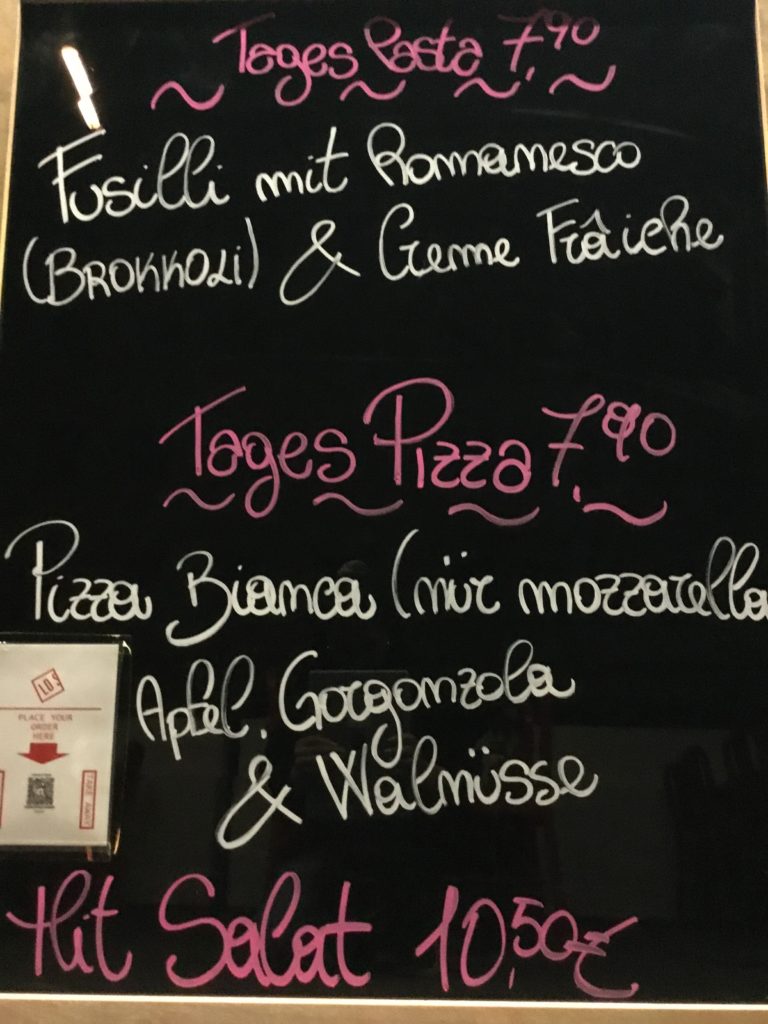 Tages Pasta 7,90
Fusilli mit Romanesco
(BROKKOLi) & Creme Frâiche
Tages Pizza 7,90
Pizza Bianca (nür mozzarella
Apfel, Gorgonzola
& Walnüsse
LOS
PLACE YOUR
ORDER
HERE
TAKE AWAY
Hit Salat 10,50€